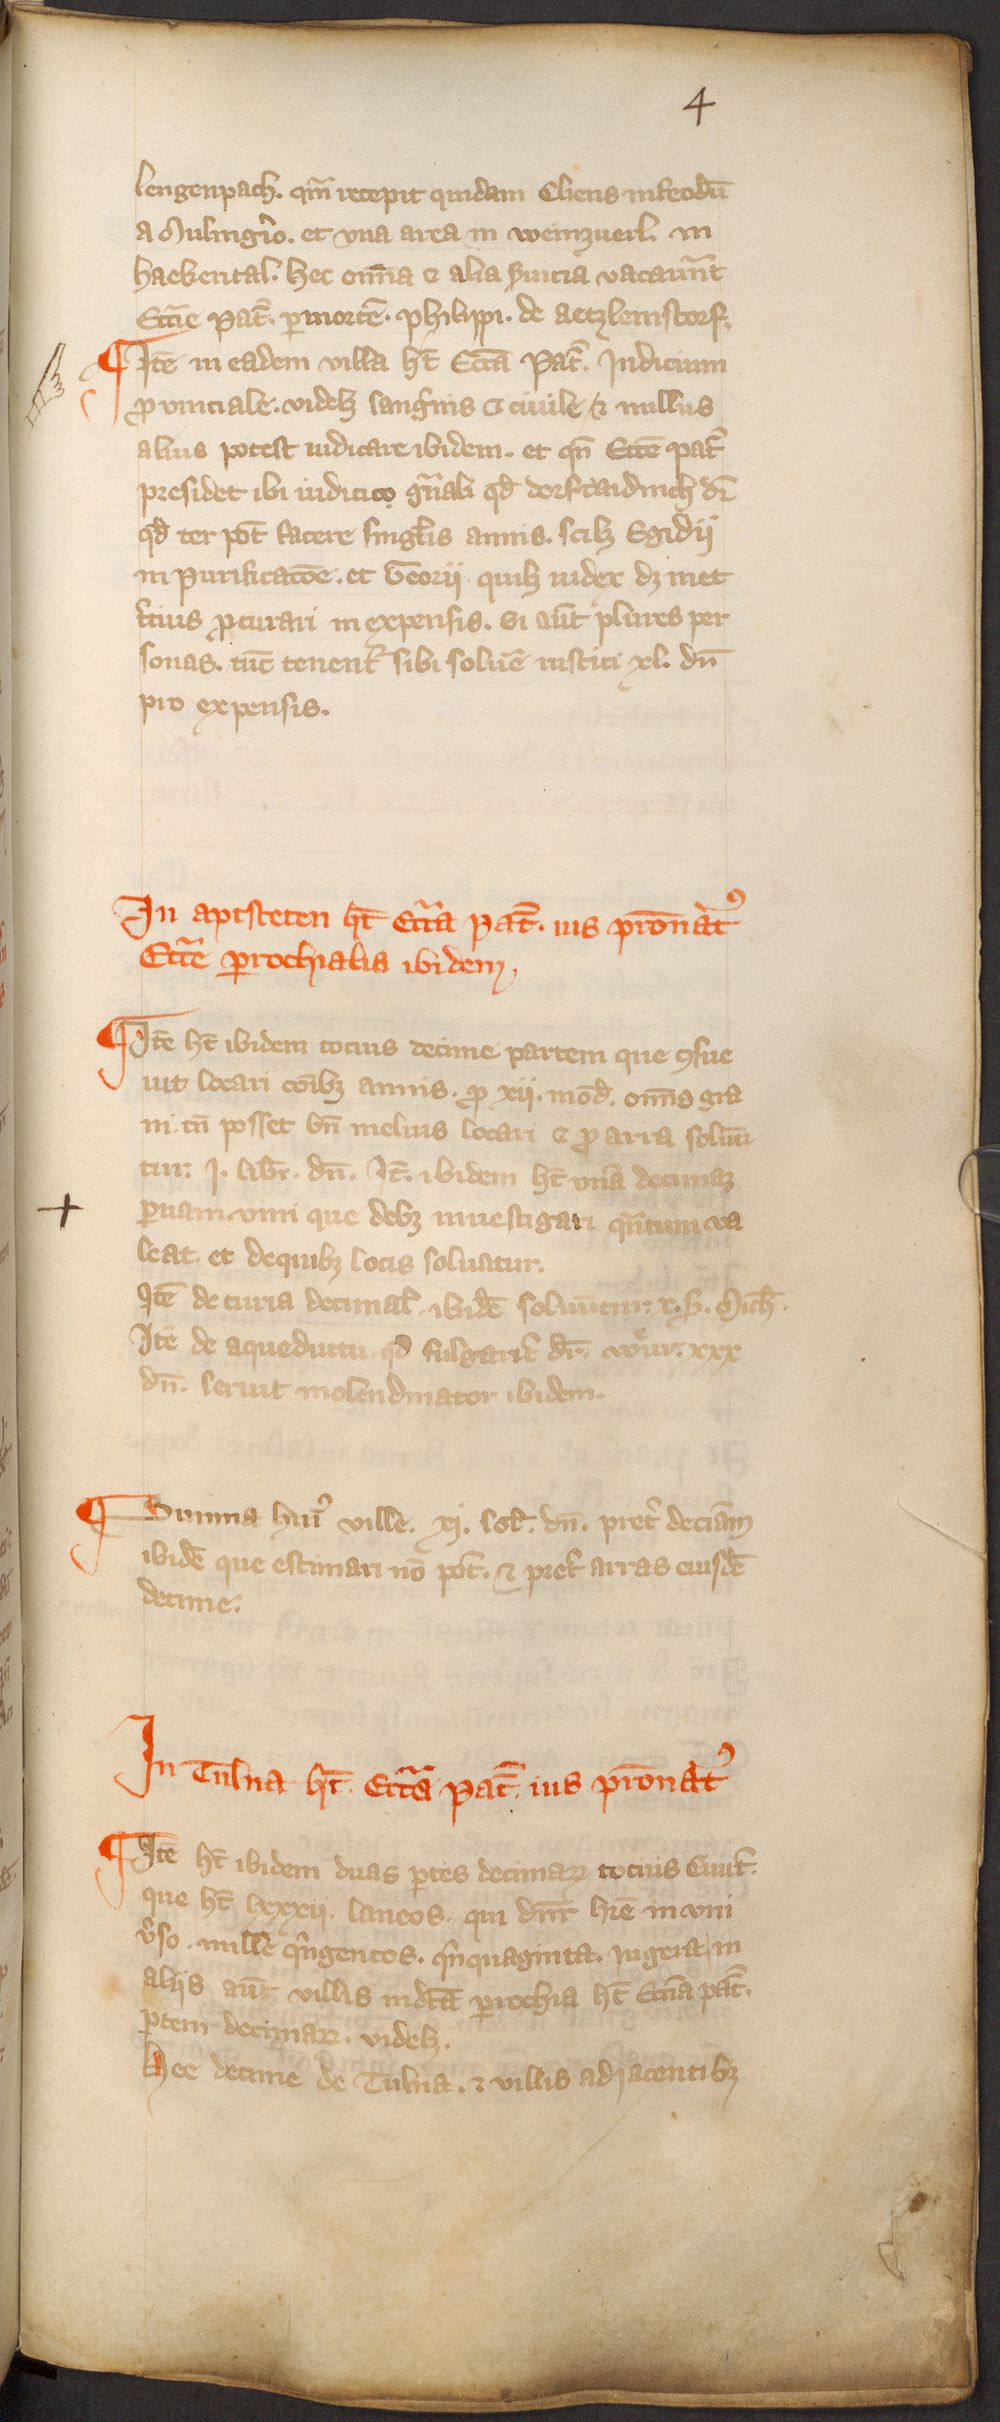 4
lengenpach. qm̄ recepit quidam Cliens infeodū
a Mulingo. et vna area in weinzuerl. in
haekental. hec om̄ia ⁊ alia s̾uicia vacauer̄t
Eccīe Pat̄. p̱mortē. philippi. de aetzleinstorf.
Itē in eadem villa ht̄ Ecc̄a Pat̄. Judicium
ꝓuinciale. videlꝫ sangˀnis ⁊ ciuile ⁊ nullus
alius potest iudicare ibidem. et qn̄ Ecc̄e pat̄
presidet ibi iudicio gn̄ali qd̄ dorftaidinch dr̄
qd̄ ter pōt facere singlis annis. scilꝫ Egidij
in Purificatōe. et Georij. quibꝫ iudex dꝫ met
t̾cius ꝓcurari in expensis. Si aūt plures per
sonas. tūc tenent̾ sibi soluē iustici xl. dn̄
pro expensis.
In aptsteten ht̄ Ecc̄ia Pat̄. ius prōnatꝰ
Ecc̄ie ꝑrochialis ibidem.
Itē ht̄ ibidem tocius decime partem que ꝯsue
uit locari cōibꝫ annis. ꝓ xij. mod̄. om̄s gra
ni. cū posset bn̄ melius locari ⁊ ꝓ arra soluū
tur. j. libr̄. dn̄. It̄. ibidem ht̄ vnā decimaꝫ
ꝑuam vini que debꝫ inuestigari qn̄tum va
leat. et de quibꝫ locis soluatur.
Itē de curia decimal̄. ibidē soluūtur. x. ß. Mich̄.
Itē de aqueductu. qd̄ wlgarit̾ dr̄. wuͤr. xxx
dn̄. seruit molendinator ibidem.
Summa huiꝰ ville. xj. sol̄. dn̄. pret̾ deciām
ibidē que estimari nō pōt. ⁊ pret̾ arras eiusdē
decime.
In Tulna ht̄. Ecc̄ia Pat̄. ius prōnatꝰ
Itē ht̄ ibidem duas ꝑtes decimaꝝ tocius Ciuit̄.
que ht̄ lxxxij. laneos. qui dn̄r hr̄e in vni
v̾so. mille qˀngentos. qˀnquaginta. Jugera. in
alijs aūt villis in dc̄a ꝑrochia ht̄ Ecc̄ia pat̄.
ꝑtem decimaꝝ. videlꝫ.
Hee decime de Tulna. ⁊ villis adiacentibꝫ